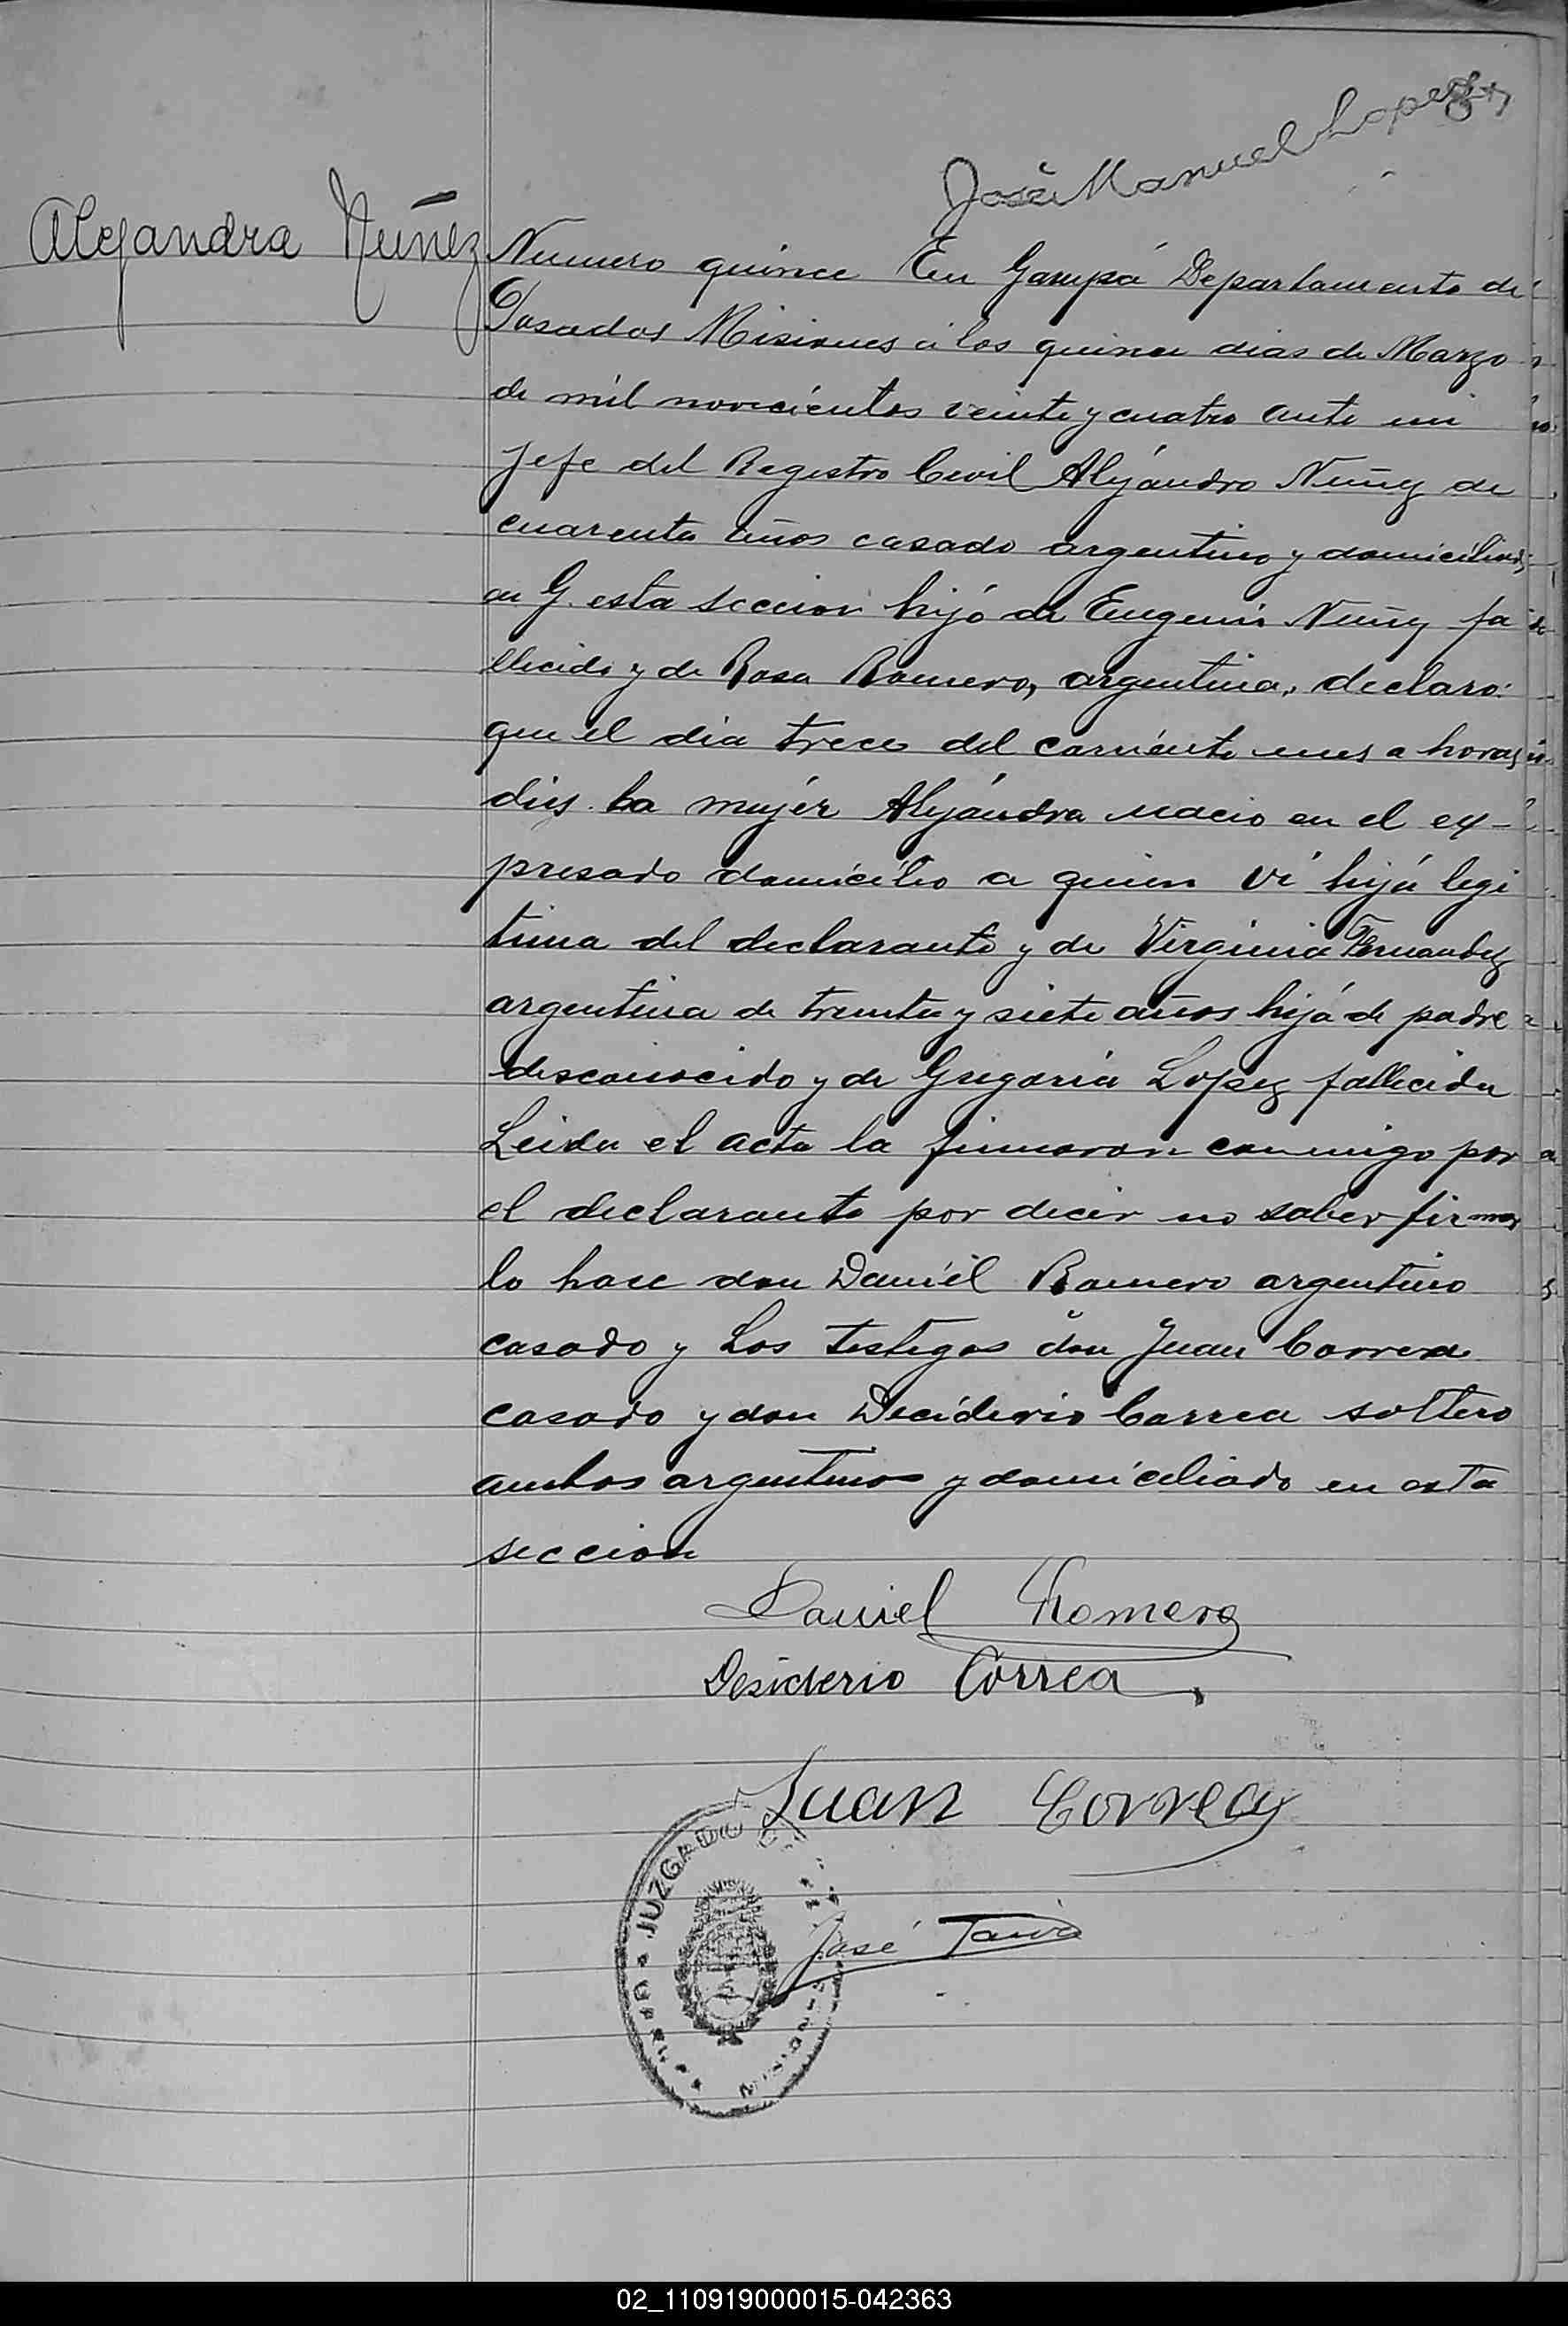 José Manuel Lopez
Alejandra Núñez
Numero quince En Garupá Departamento de
Posadas Misiones á los quince dias de Marzo
de mil novecientos veinte y cuatro ante mi
Jefe del Registro Civil Alejandro Nuñez de
cuarenta años casado argentino y domiciliado
en G. esta seccion hijo de Eugenio Nuñez fa
llecido y de Rosa Romero, argentina, declaro:
que el dia trece del corriente mes a horas
diez la mujer Alejandra nacio en el ex-
presado domicilio a quien vi hija legi
tima del declarante y de Virginia Fernandez
argentina de treinta y siete años hija de padre
desconocido y de Gregoria Lopez fallecida
Leida el acta la firmaron conmigo por
el declarante por decir no saber firmar
lo hace don Daniel Romero argentino
casado y los testigos don Juan Correa
casado y don Deciderio Correa soltero
ambos argentinos y domiciliado en esta
seccion
Daniel Romero
Desiderio Correa
Juan Correa
JUZGADO
José
MISIONES
02_110919000015-042363